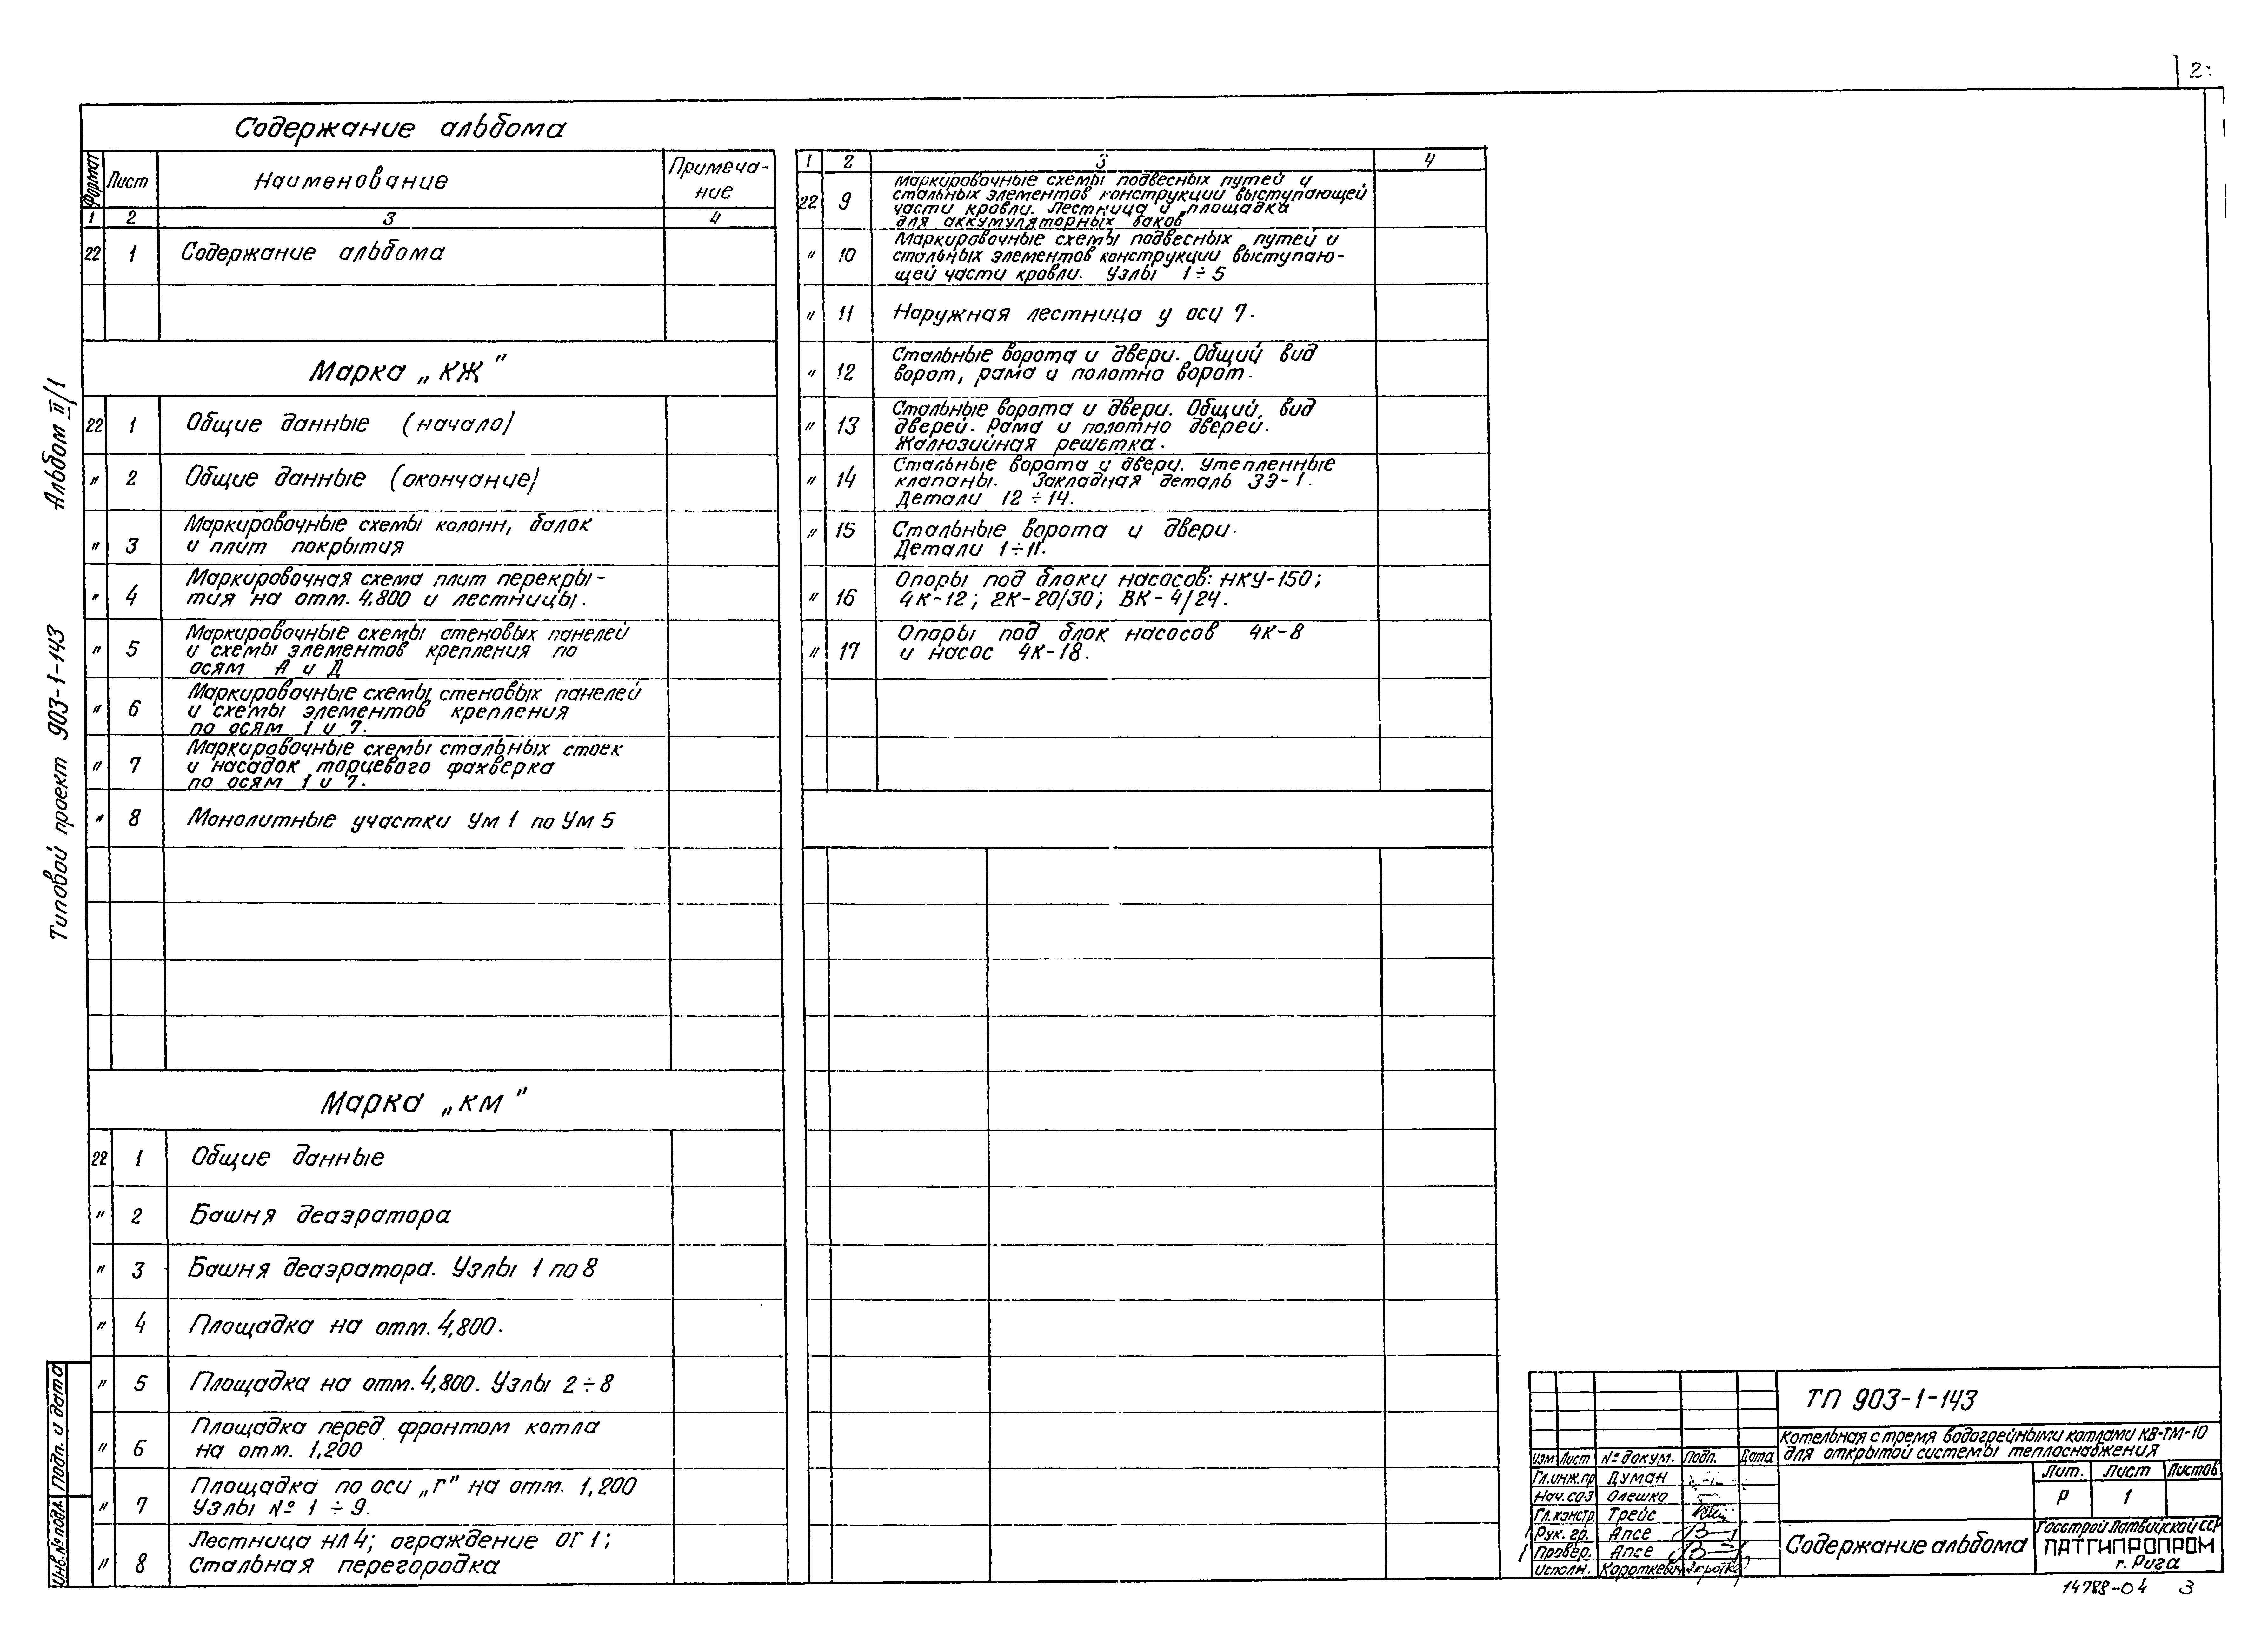 2
Содержание альбома
Формат
Лист
Наименование
Примеча-
ние
1 2 3 4
22 1 Содержание альбома
Марка „КЖ"
22 1 Общие данные (начало)
" 2 Общие данные (окончание)
Маркировочные схемы колонн, балок
" 3 и плит покрытия
Маркировочная схема плит перекры-
" 4 тия на отм. 4,800 и лестницы.
Маркировочные схемы стеновых панелей
" 5 и схемы элементов крепления по
осям А и Д
Маркировочные схемы стеновых панелей
" 6 и схемы элементов крепления
по осям 1 и 7.
Маркировочные схемы стальных стоек
" 7 и насадок торцевого фахверка
по осям 1 и 7.
" 8 Монолитные участки Ум 1 по Ум 5
Марка „КМ"
22 1 Общие данные
" 2 Башня деаэратора
" 3 Башня деаэратора. Узлы 1 по 8
" 4 Площадка на отм. 4,800.
" 5 Площадка на отм. 4,800. Узлы 2÷8
Площадка перед фронтом котла
" 6 на отм. 1,200
Площадка по оси „Г" на отм. 1,200
" 7 Узлы № 1 ÷ 9.
Лестница НЛ4; ограждение ОГ1;
" 8 Стальная перегородка
1 2 3 4
Маркировочные схемы подвесных путей и
22 9 стальных элементов конструкции выступающей
части кровли. Лестница и площадка
для аккумуляторных баков
Маркировочные схемы подвесных путей и
" 10 стальных элементов конструкции выступаю-
щей части кровли. Узлы 1÷5
" 11 Наружная лестница у оси 7.
Стальные ворота и двери. Общий вид
" 12 ворот, рама и полотно ворот.
Стальные ворота и двери. Общий вид
" 13 дверей. Рама и полотно дверей.
Жалюзийная решетка.
Стальные ворота и двери. Утепленные
" 14 клапаны. Закладная деталь ЗЭ-1.
Детали 12÷14.
" 15 Стальные ворота и двери.
Детали 1÷11.
Опоры под блоки насосов: НКУ-150;
" 16 4К-12; 2К-20/30; ВК-4/24.
Опоры под блок насосов 4К-8
" 17 и насос 4К-18.
Альбом II/1
Типовой проект 903-1-143
Подп. и дата
Инв.№ подл.
ТП 903-1-143
Котельная с тремя водогрейными котлами КВ-ТМ-10
для открытой системы теплоснабжения
Изм Лист № докум. Подп. Дата
Гл.инж.пр Думан
Нач.СО-3 Олешко
Гл.констр. Трейс
Рук. гр. Апсе
Провер. Апсе
Исполн. Короткевич
Лит. Лист Листов
Р 1
Содержание альбома
Госстрой Латвийской ССР
ЛАТГИПРОПРОМ
г. Рига
14788-04 3